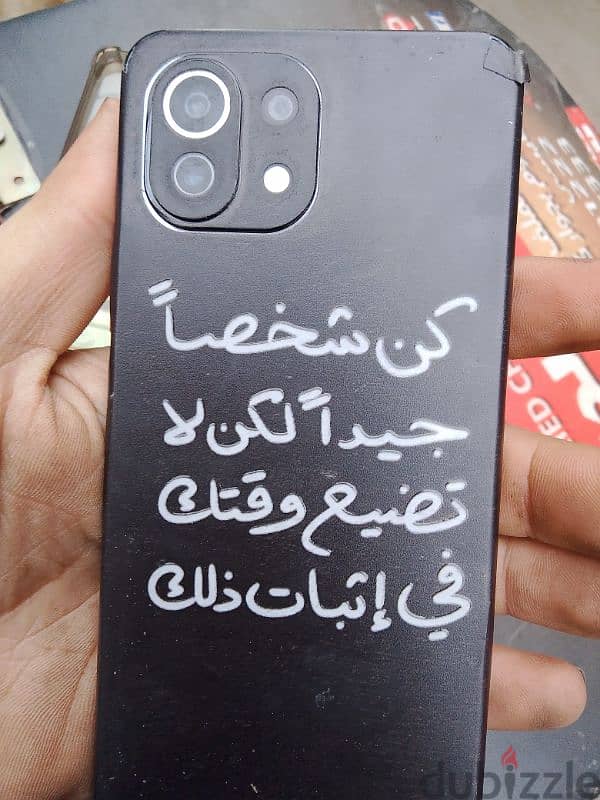 كن شخصاً
جيداً لكن لا
تضيع وقتك
في إثبات ذلك
dubizzle